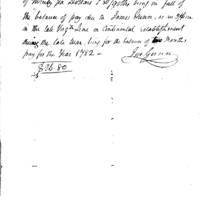 of Twenty six Dollars & 80/90ths being in full of
the balance of pay due to James Gunn, as an Officer
in the late Virga Line on Continental establishment
during the late War, being for the balance of two Months
pay for the Year 1782 —
$ 26.80
Jas Gunn